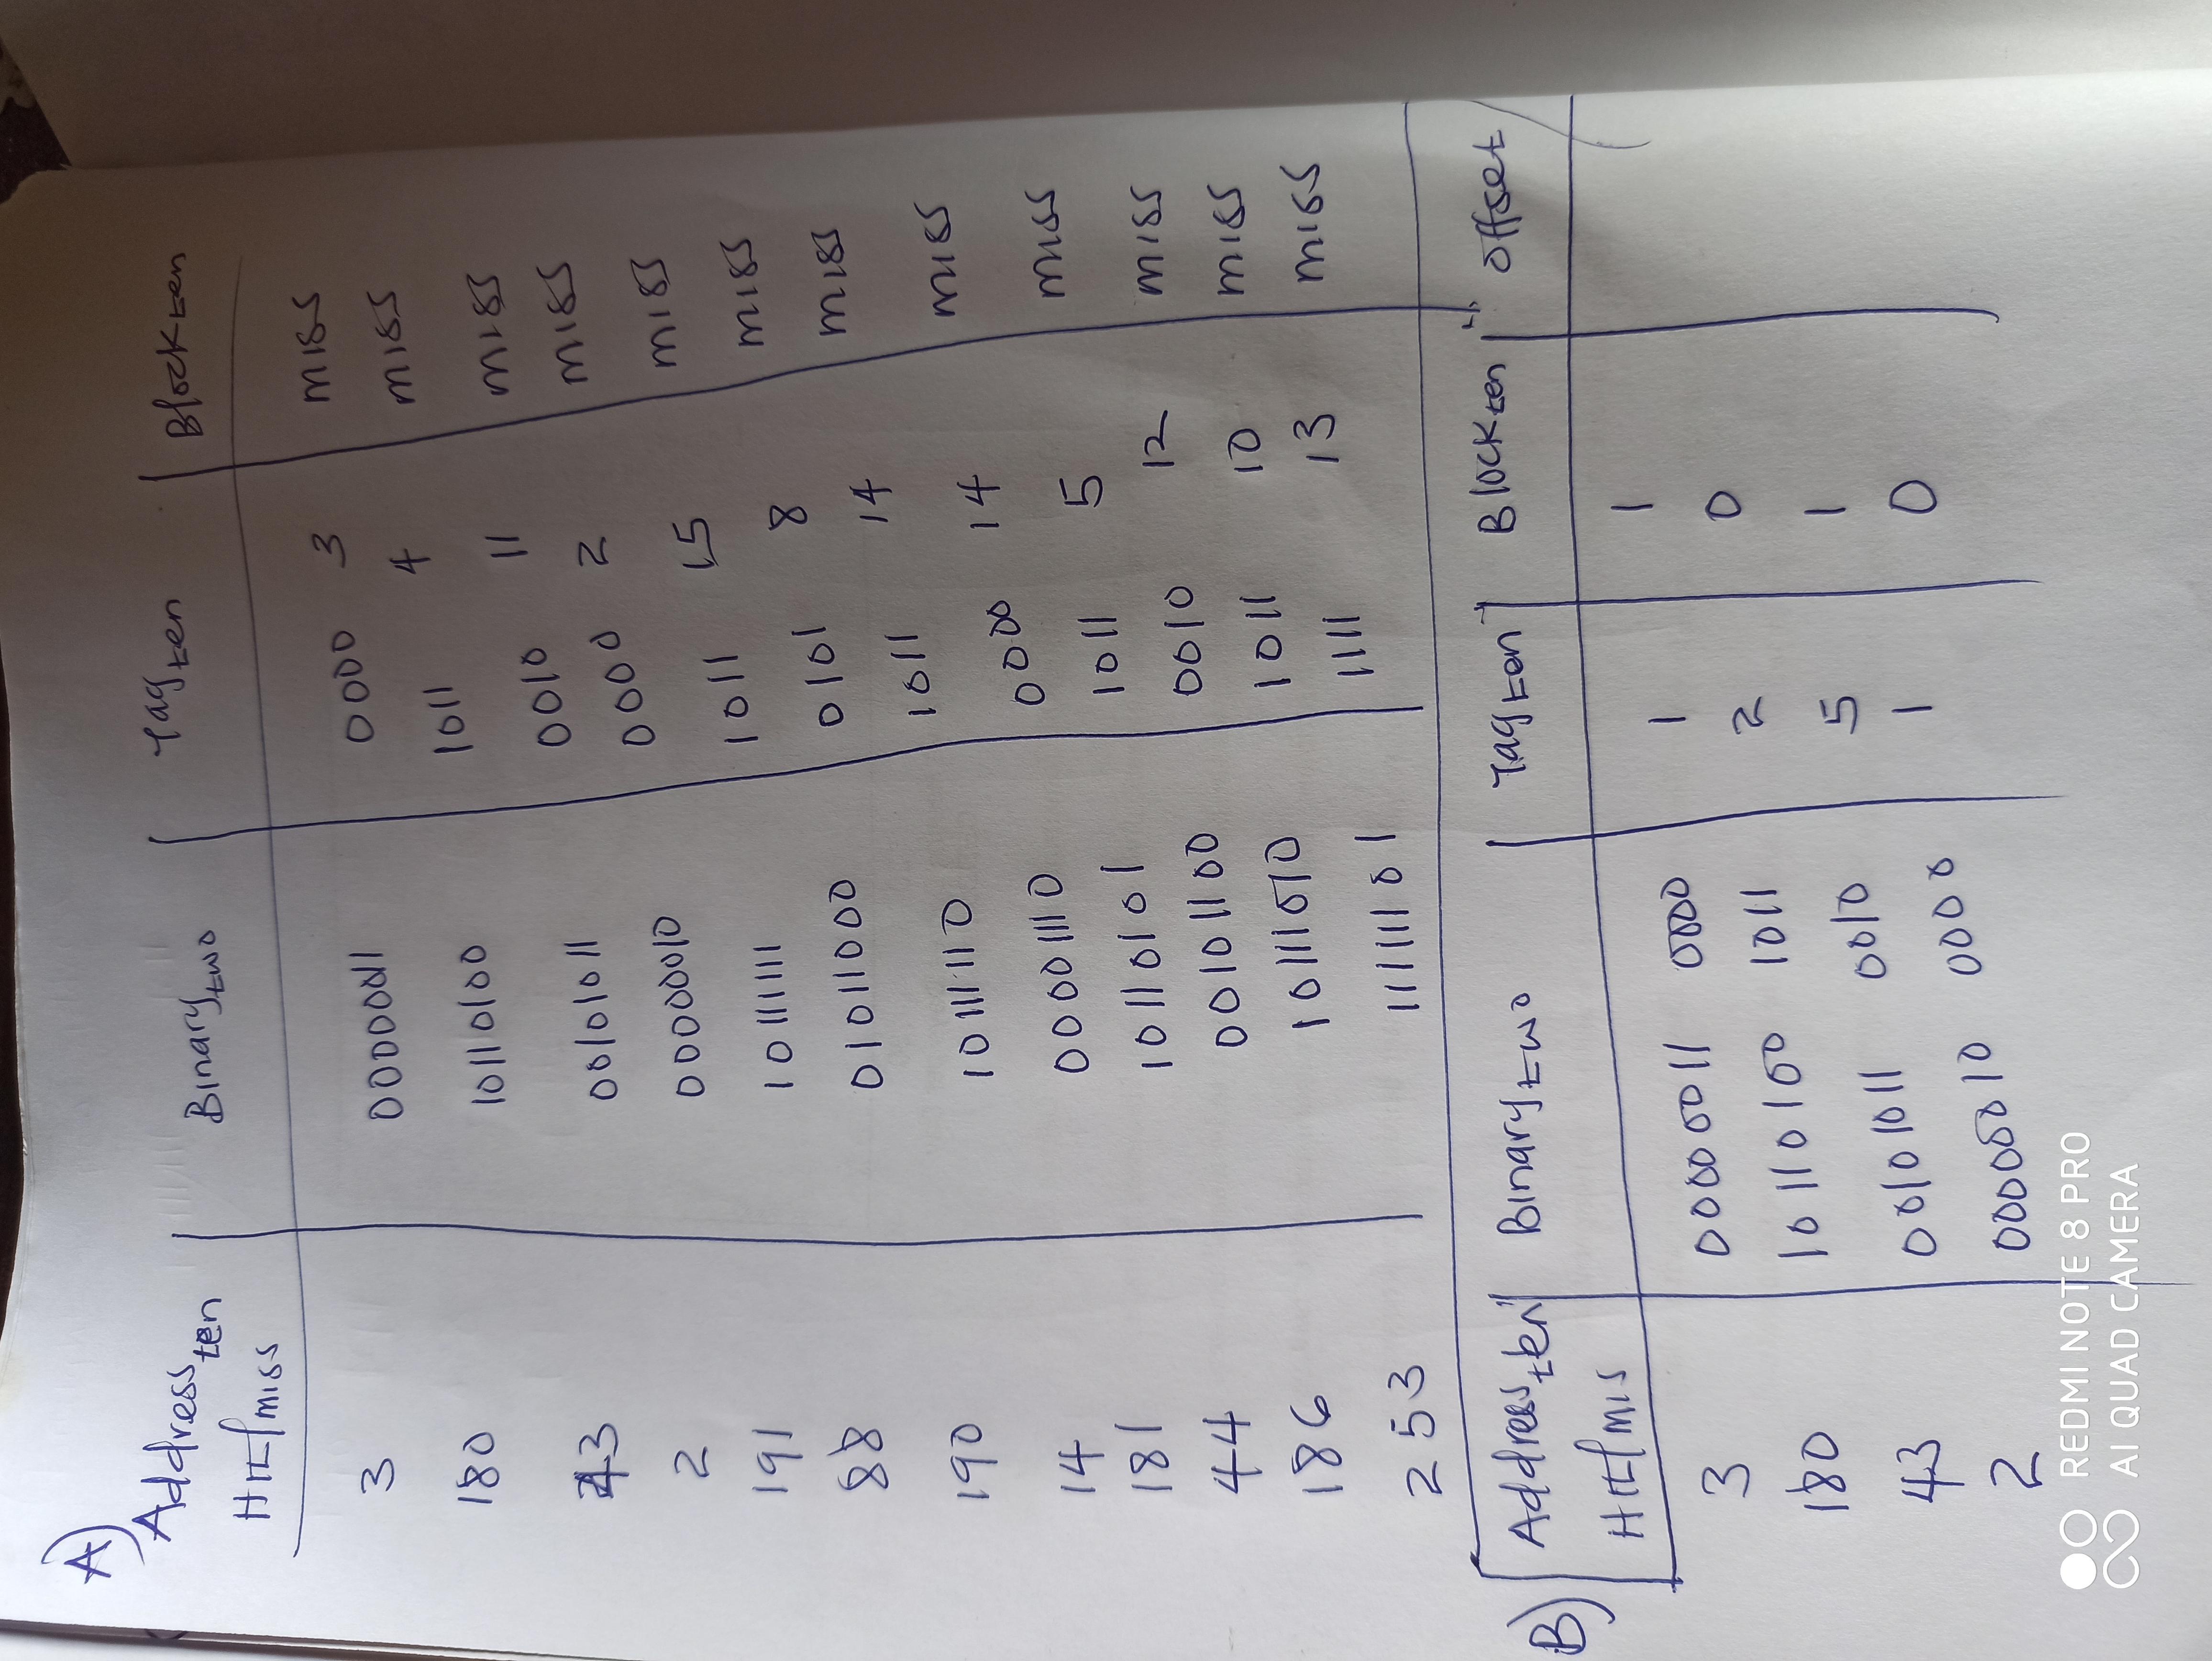 A)
Address ten | Binary two | Tag ten | Block ten
Hit/miss
3 00000011 0000 3 miss
180 10110100 1011 4 miss
43 00101011 0010 11 miss
2 00000010 0000 2 miss
191 10111111 1011 15 miss
88 01011000 0101 8 miss
190 10111110 1011 14 miss
14 00001110 0000 14 miss
181 10110101 1011 5 miss
44 00101100 0010 12 miss
186 10111010 1011 10 miss
253 11111101 1111 13 miss
B)
Address ten | Binary two | Tag ten | Block ten | offset
Hit/mis
3 00000011 0000 1 1
180 10110100 1011 2 0
43 00101011 0010 5 1
2 00000010 0000 1 0
REDMI NOTE 8 PRO
AI QUAD CAMERA